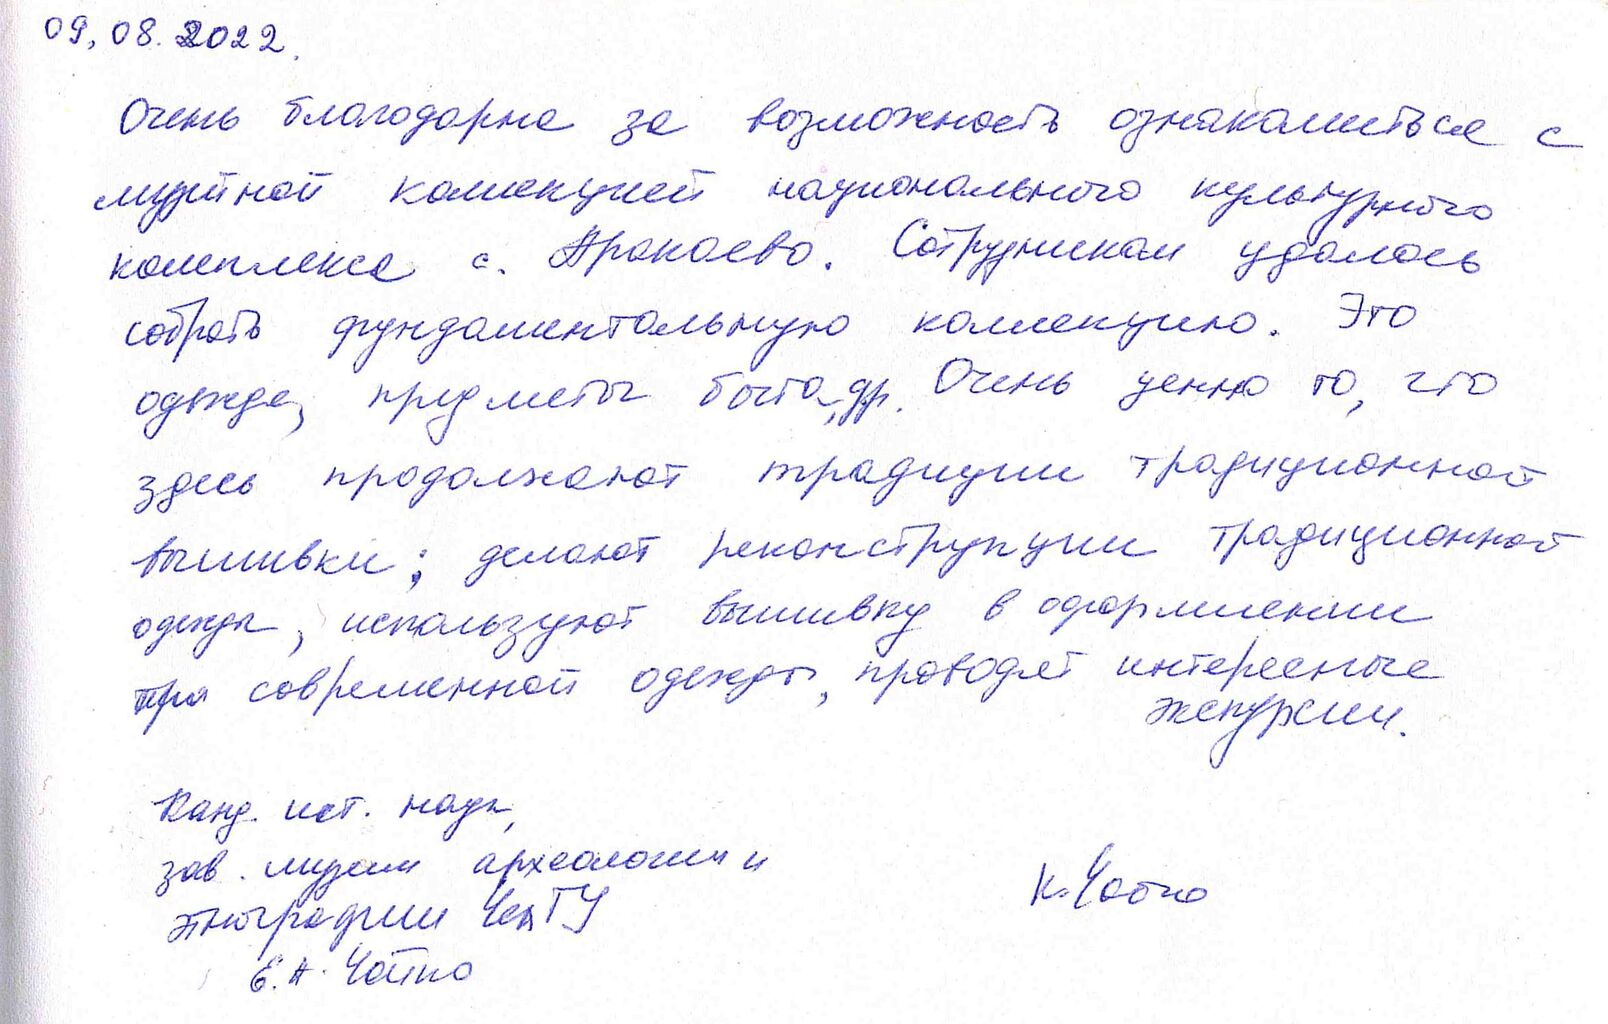 09.08.2022.
Очень благодарна за возможность ознакомиться с
музейной коллекцией национального культурного
комплекса с. Аракаево. Сотрудникам удалось
собрать фундаментальную коллекцию. Это
одежда, предметы быта, др. Очень ценно то, что
здесь продолжают традиции традиционной
вышивки; делают реконструкции традиционной
одежды, используют вышивку в оформлении
современной одежды, проводят интересные
экскурсии.
Канд. ист. наук,
зав. музеем археологии и
этнографии ЧелГУ
К.
Е.А.